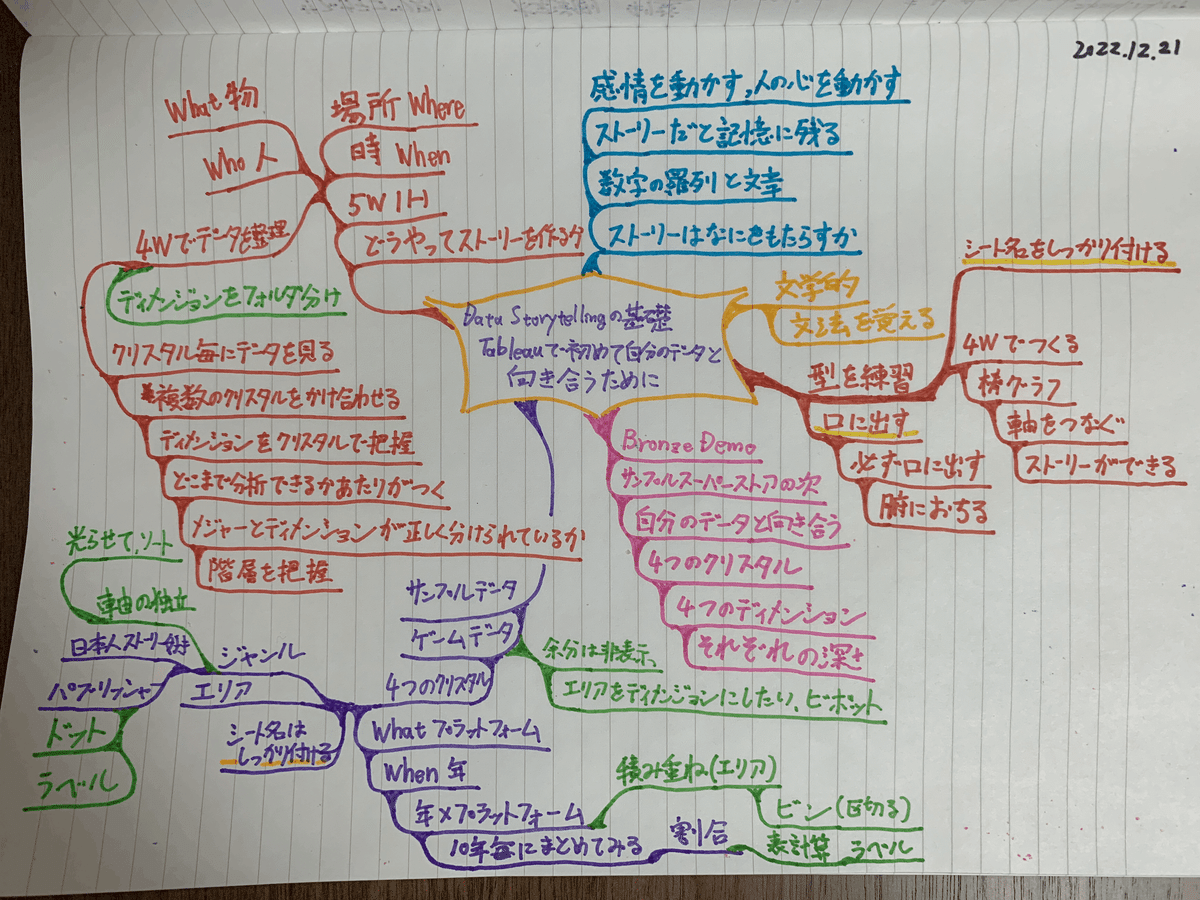 2022.12.21
Data Storytellingの基礎
Tableauで初めて自分のデータと
向き合うために
感情を動かす,人の心を動かす
ストーリーだと記憶に残る
数字の羅列と文章
ストーリーはなにをもたらすか
文学的
文法を覚える
型を練習
口に出す
必ず口に出す
腑におちる
シート名をしっかり付ける
4Wでつくる
棒グラフ
軸をつなぐ
ストーリーができる
Bronze Demo
サンプルスーパーストアの次
自分のデータと向き合う
4つのクリスタル
4つのディメンション
それぞれの深さ
サンプルデータ
ゲームデータ
4つのクリスタル
余分は非表示、
エリアをディメンジョンにしたい、ピボット
What プラットフォーム
When 年
年×プラットフォーム
10年毎にまとめてみる
積み重ね(エリア)
ビン(区切る)
割合
表計算 ラベル
ジャンル
エリア
シート名は
しっかり付ける
光らせて,ソート
軸の独立
日本人ストーリー好き
パブリッシャー
ドット
ラベル
場所 Where
時 When
5W1H
どうやってストーリーを作るか
What 物
Who 人
4Wでデータを整理
ディメンションをフォルダ分け
クリスタル毎にデータを見る
複数のクリスタルをかけ合わせる
ディメンションをクリスタルで把握
どこまで分析できるかあたりがつく
メジャーとディメンションが正しく分けられているか
階層を把握